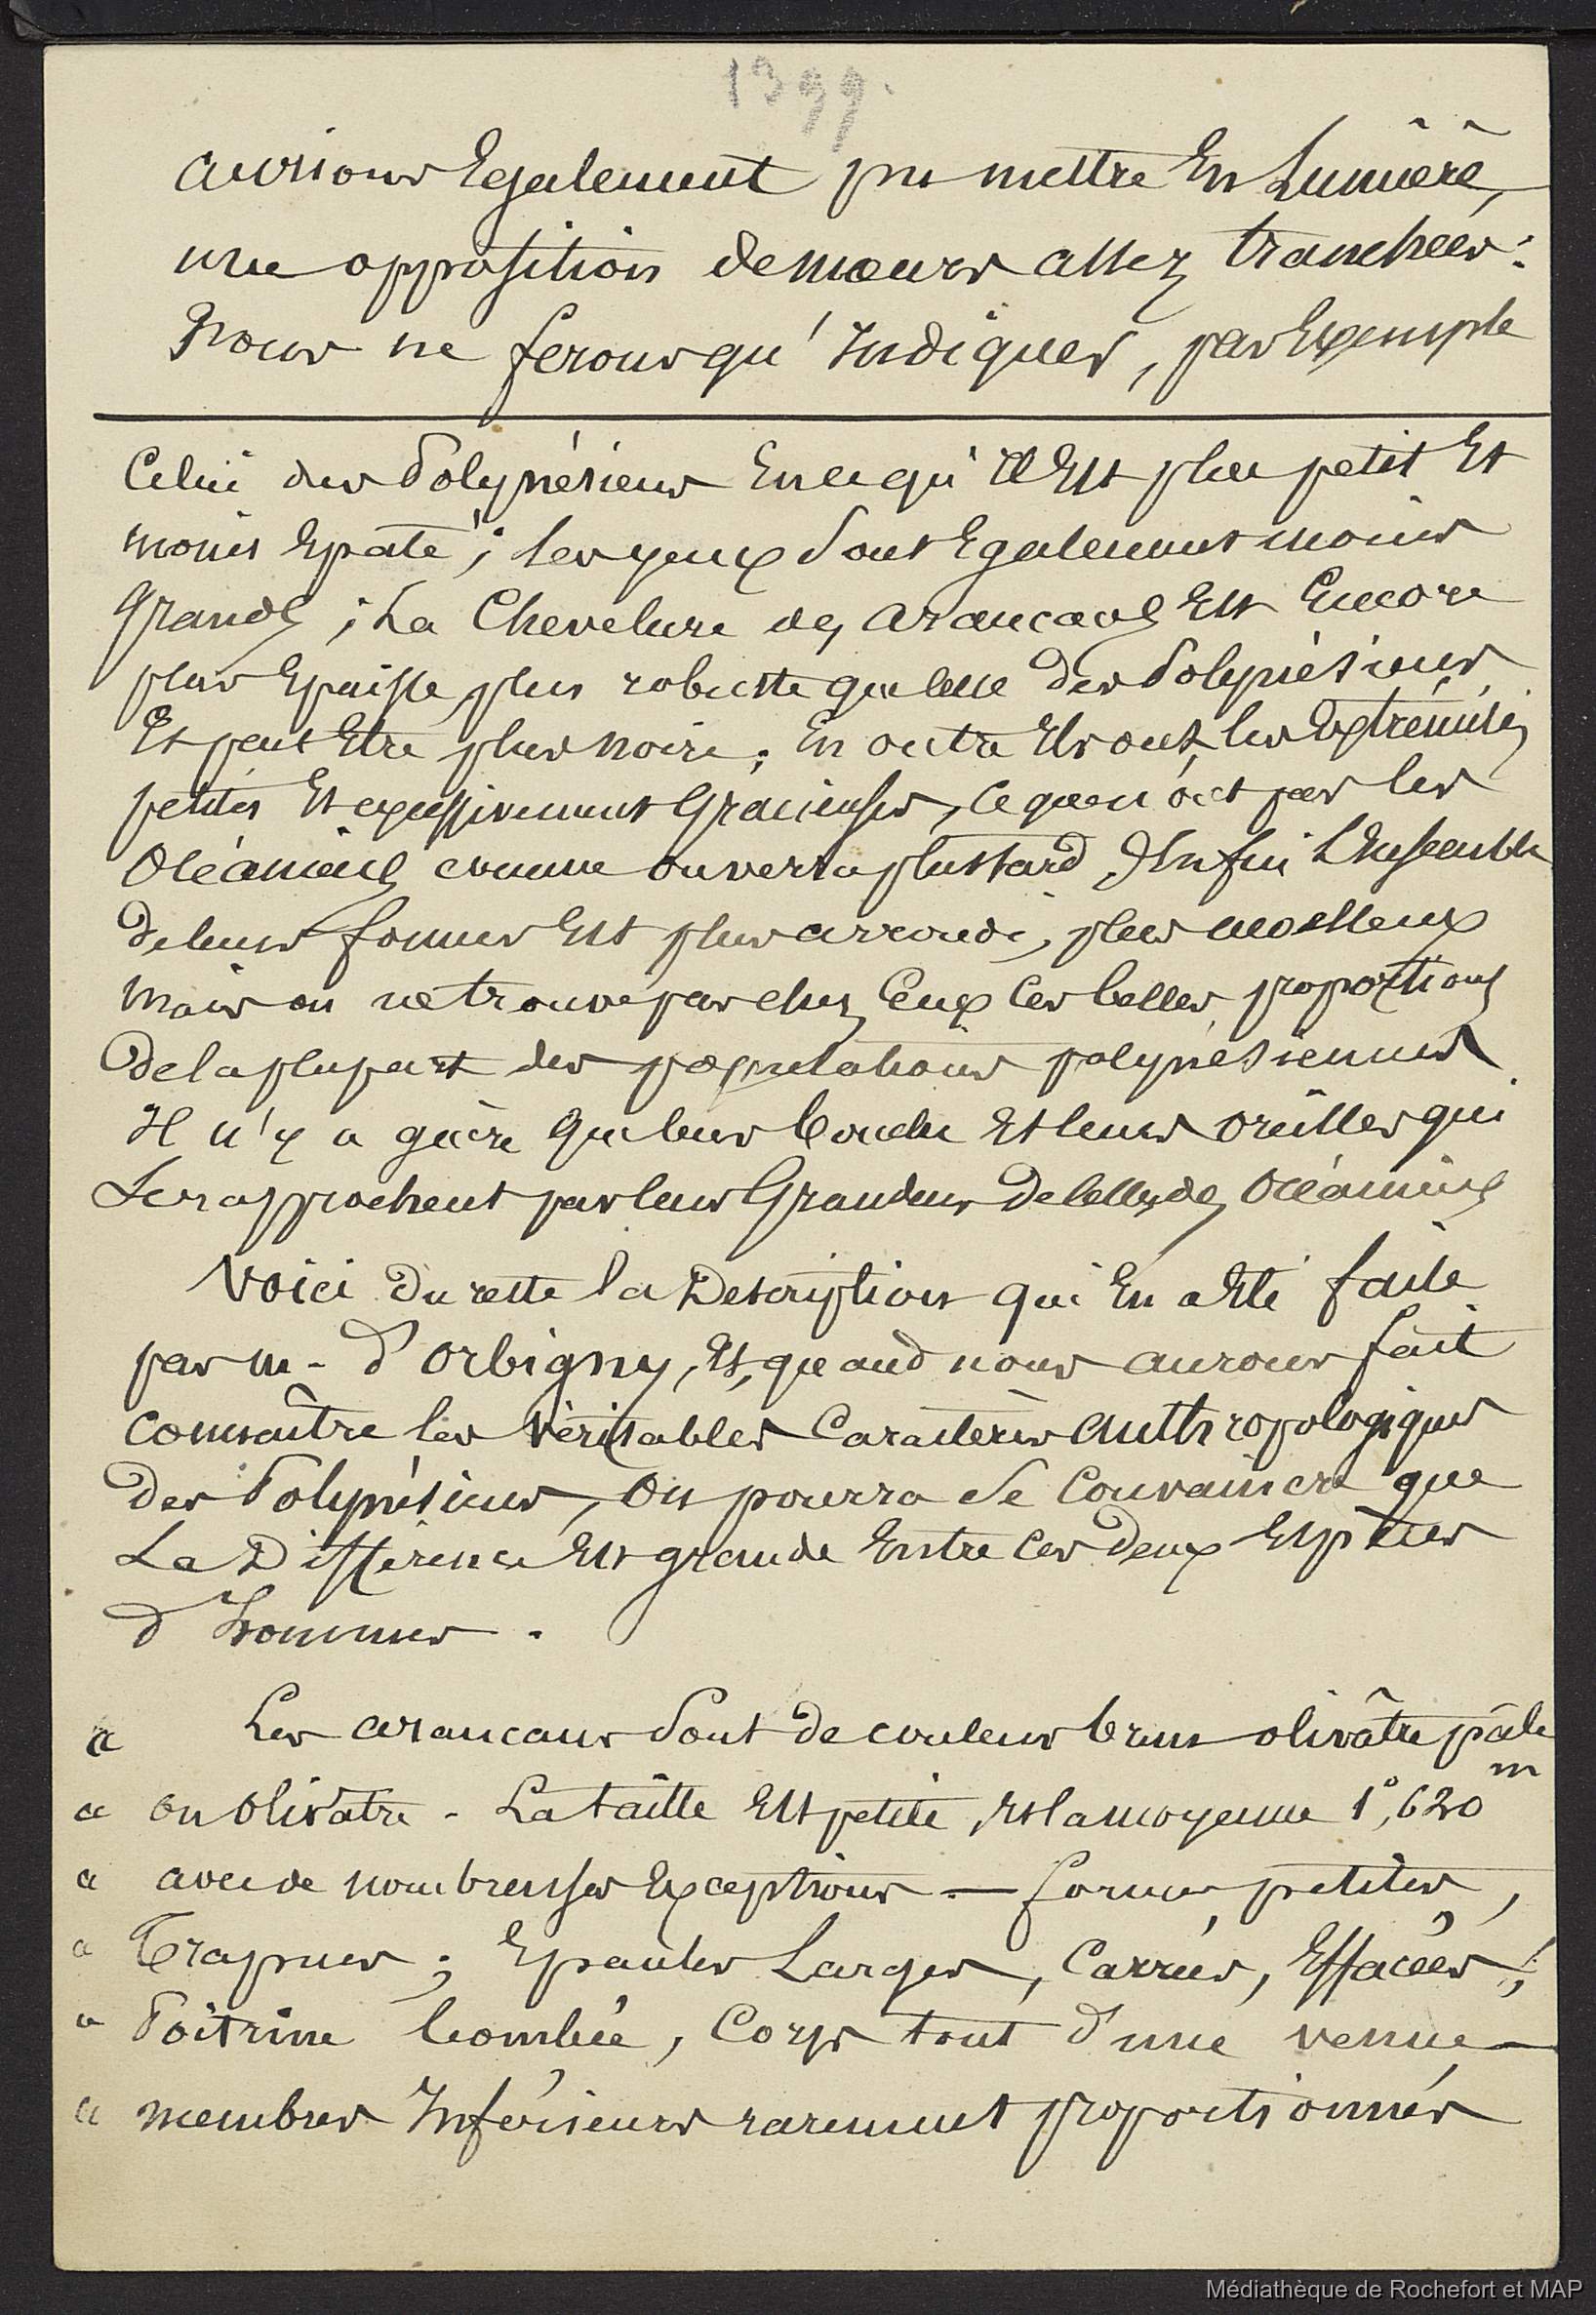 1399.
aurions Egalement pu mettre En Lumière,
une opposition de moeurs assez tranchées:
Nous ne ferons qu'Indiquer, par Exemple
Celui des Polynésiens En ce qu'Il Est plus petit Et
moins Epaté; les yeux sont Egalement moins
Grands; La Chevelure des araucans Est Encore
plus Epaisse, plus robuste que celle des Polynésiens,
Et peut Etre plus noire; En outre Ils ont, les Extrémités
petites Et excessivement Gracieuses, ce que n'ont pas les
Océaniens comme on verra plus tard, Enfin L'Ensemble
de leurs formes Est plus arrondi, plus moelleux
mais on ne trouve pas chez Ceux Ces belles proportions
De la plupart des populations polynésiennes.
Il n'y a guère que leur bouche Et leurs oreilles qui
Se rapprochent par leur Grandeur De celles des Océaniens
Voici Du reste la Description qui En a Eté faite
par m. d'Orbigny, Et, quand nous aurons fait
connaître les véritables Caractères anthropologiques
Des Polynésiens, on pourra se Convaincre que
La Différence Est grande Entre Ces Deux Espèces
d'hommes.
" Les araucans sont de couleur brun olivâtre pâle
" ou olivâtre. La taille Est petite, Et la moyenne 1°,620 m
" avec de nombreuses Exceptions — formes petites,
" Trapues; Epaules Larges, Carrées, Effacées;
" Poitrine bombée, Corps tout d'une venue —
" membres Inférieurs rarement proportionnés
Médiathèque de Rochefort et MAP